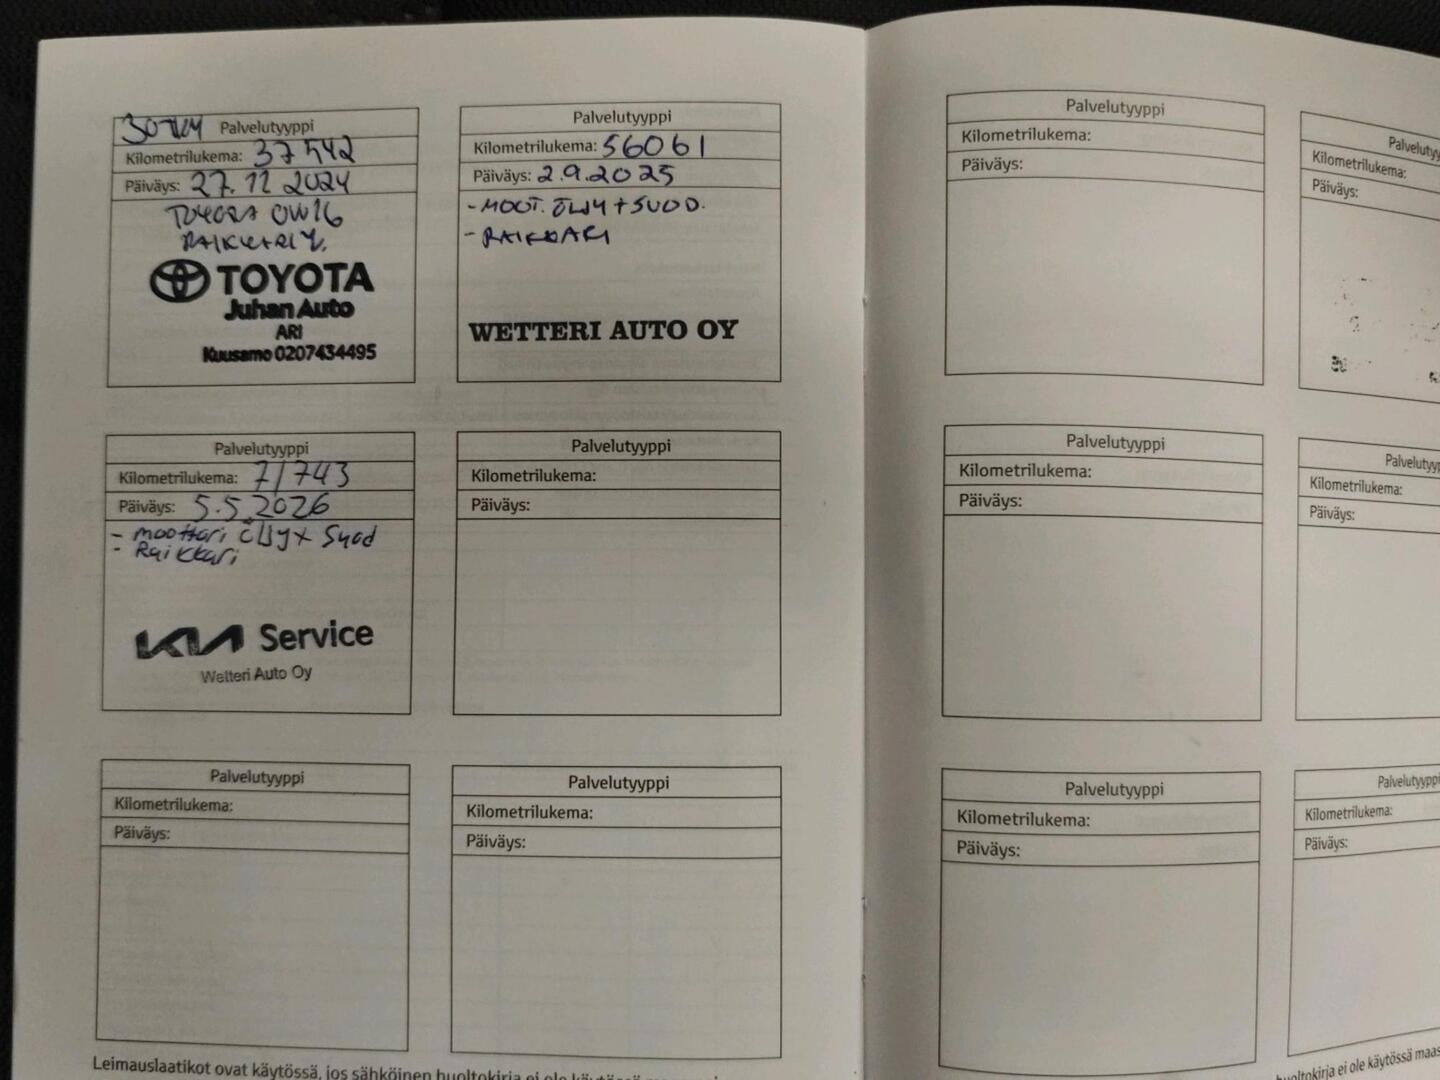 30TKM Palvelutyyppi
Kilometrilukema: 37542
Päiväys: 27.11 2024
TOYOTA 0W16
RAIKKARI
TOYOTA
Juhan Auto
ARI
Kuusamo 0207434495
Palvelutyyppi
Kilometrilukema: 56061
Päiväys: 2.9.2025
- MOOT. ÖLJY + SUOD.
- RAIKKARI
WETTERI AUTO OY
Palvelutyyppi
Kilometrilukema: 71743
Päiväys: 5.5.2026
- moottori öljy + Suod
- Raikkari
KIA Service
Wetteri Auto Oy
Palvelutyyppi
Kilometrilukema:
Päiväys:
Palvelutyyppi
Kilometrilukema:
Päiväys:
Palvelutyyppi
Kilometrilukema:
Päiväys:
Leimauslaatikot ovat käytössä, jos sähköinen huoltokirja ei ole käytössä
Palvelutyyppi
Kilometrilukema:
Päiväys:
Palvelutyy
Kilometrilukema:
Päiväys:
Palvelutyyppi
Kilometrilukema:
Päiväys:
Palvelutyyp
Kilometrilukema:
Päiväys:
Palvelutyyppi
Kilometrilukema:
Päiväys:
Palvelutyyppi
Kilometrilukema:
Päiväys:
huoltokirja ei ole käytössä maas